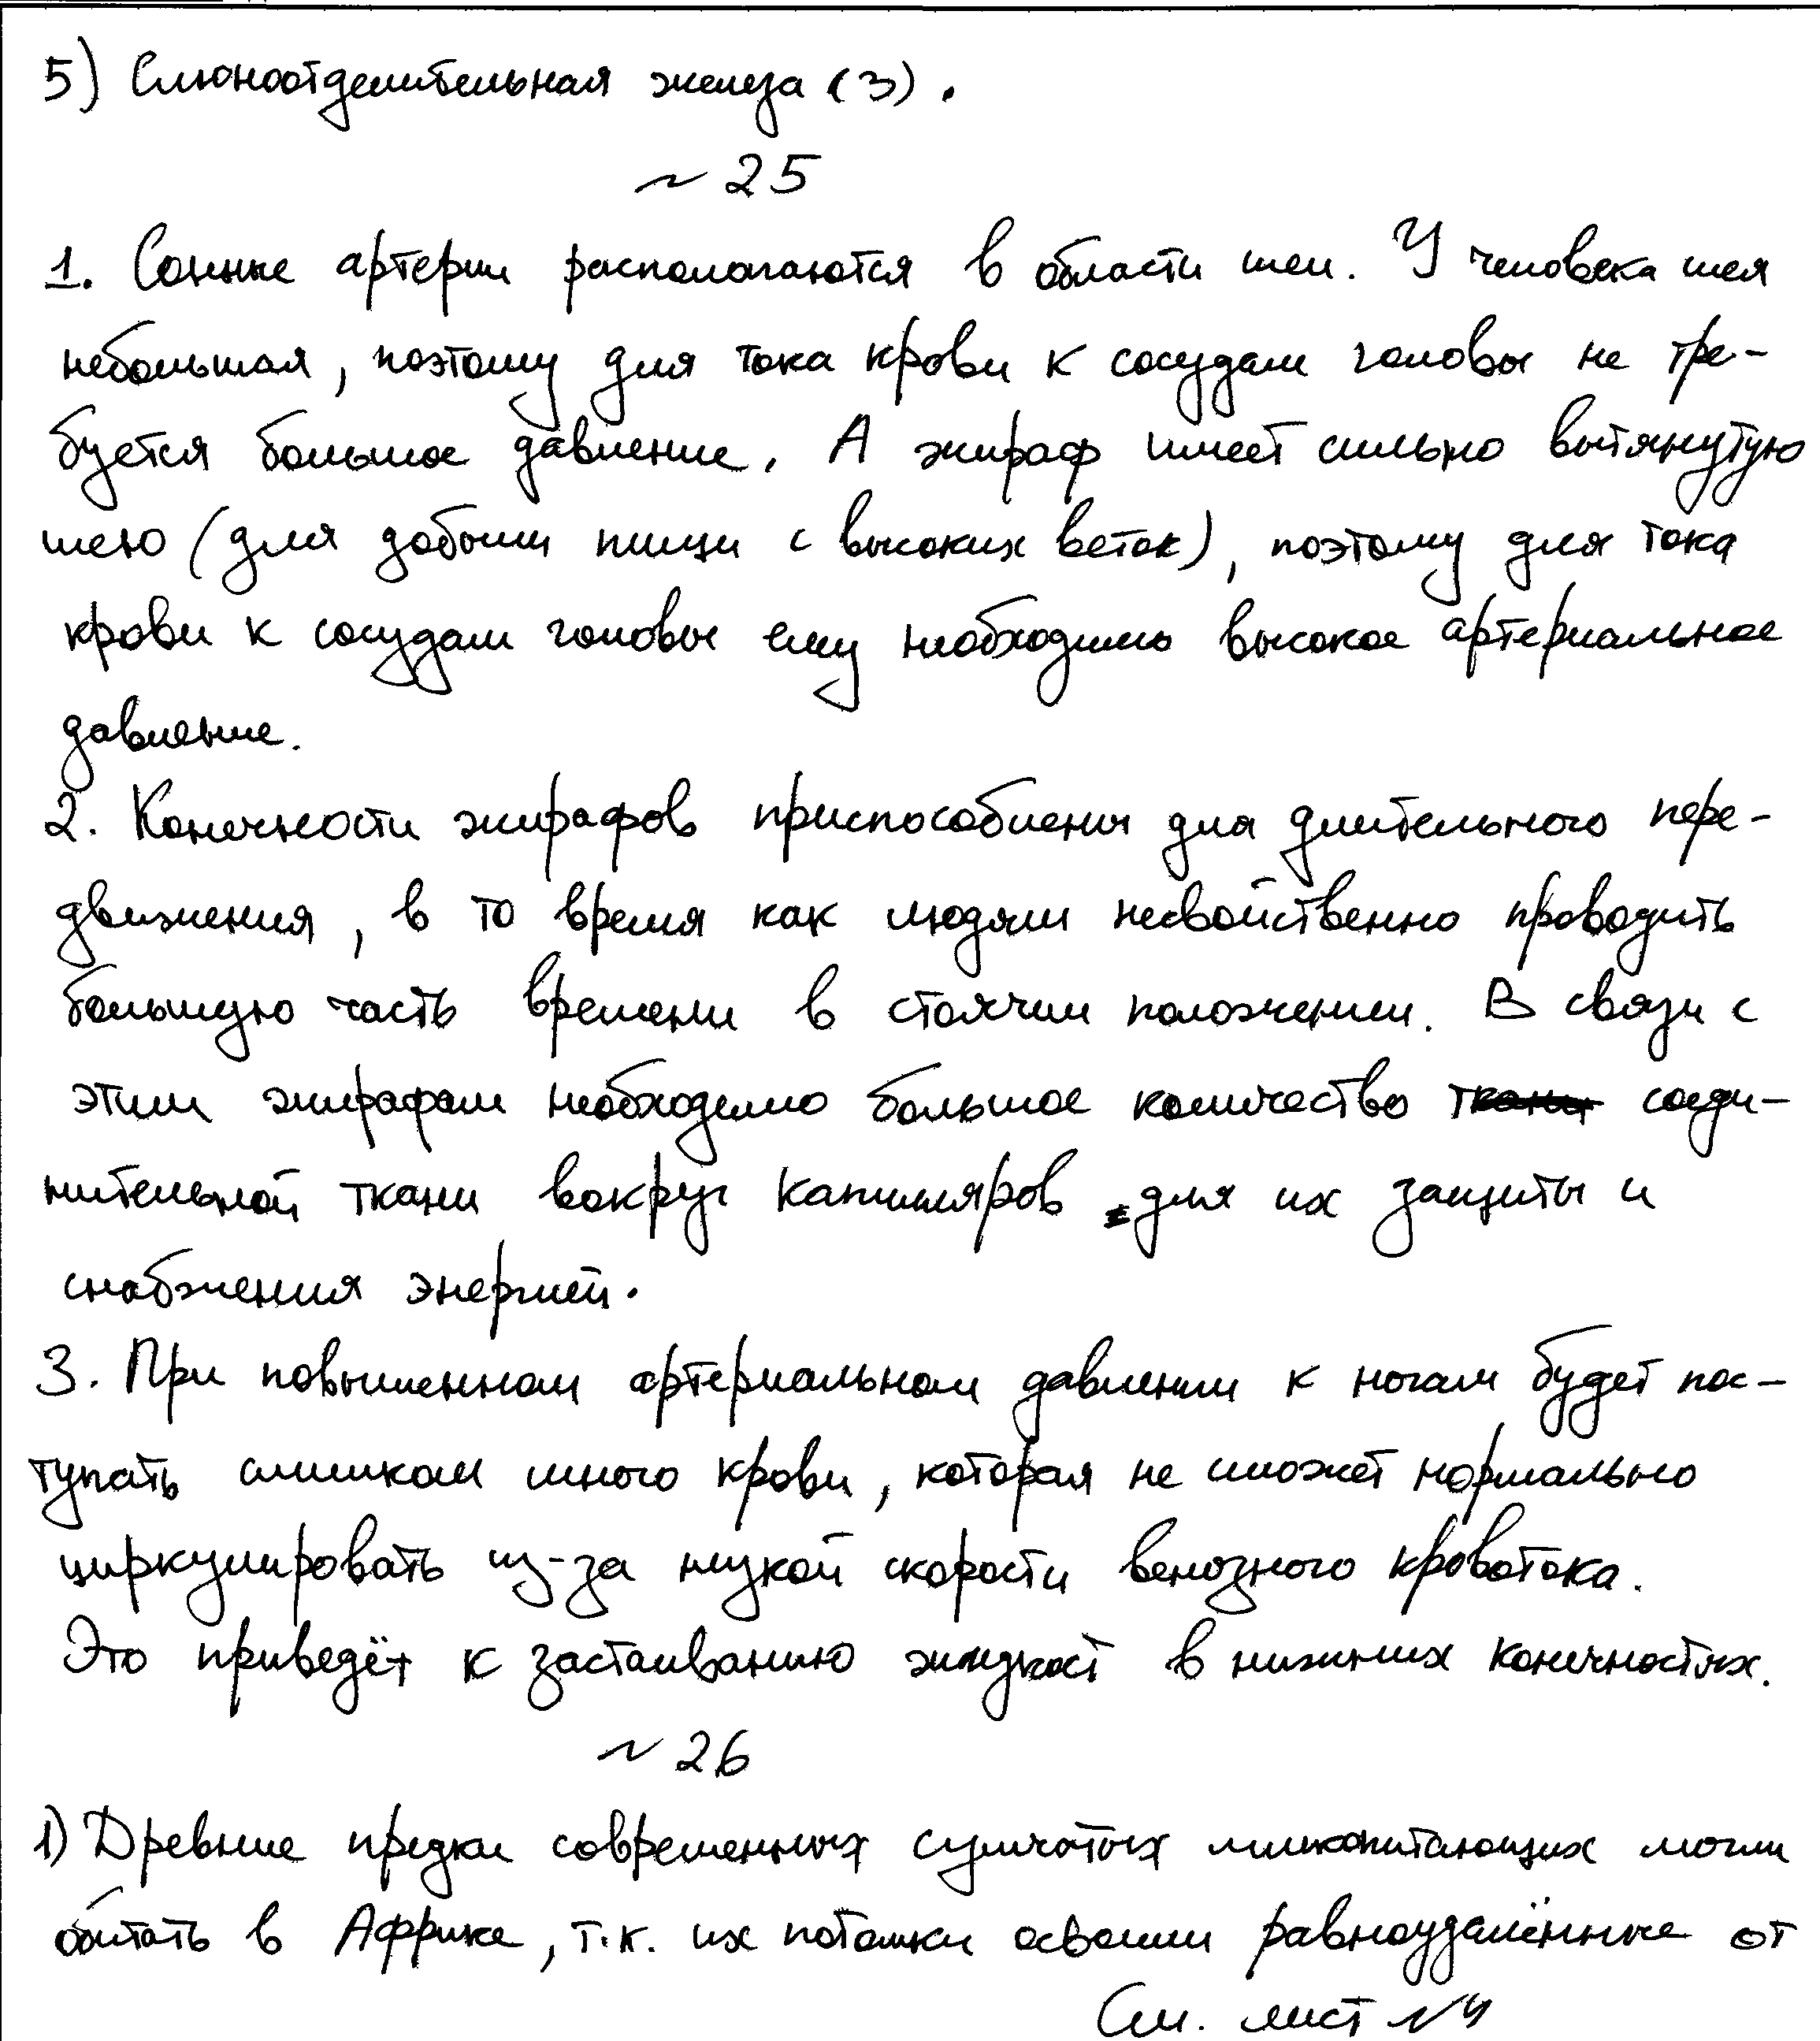 5) Слюноотделительная железа (3).
~ 25
1. Сонные артерии располагаются в области шеи. У человека шея
небольшая, поэтому для тока крови к сосудам головы не тре-
буется большое давление. А жираф имеет сильно вытянутую
шею (для добычи пищи с высоких веток), поэтому для тока
крови к сосудам головы ему необходимо высокое артериальное
давление.
2. Конечности жирафов приспособлены для длительного пере-
движения, в то время как людям несвойственно проводить
большую часть времени в стоячем положении. В связи с
этим жирафам необходимо большое количество ткани соеди-
нительной ткани вокруг капилляров для их защиты и
снабжения энергией.
3. При повышенном артериальном давлении к ногам будет пос-
тупать слишком много крови, которая не сможет нормально
циркулировать из-за низкой скорости венозного кровотока.
Это приведёт к застаиванию жидкост в нижних конечностях.
~ 26
1) Древние предки современных сумчатых млекопитающих могли
обитать в Африке, т.к. их потомки освоили равноудалённые от
См. лист №4